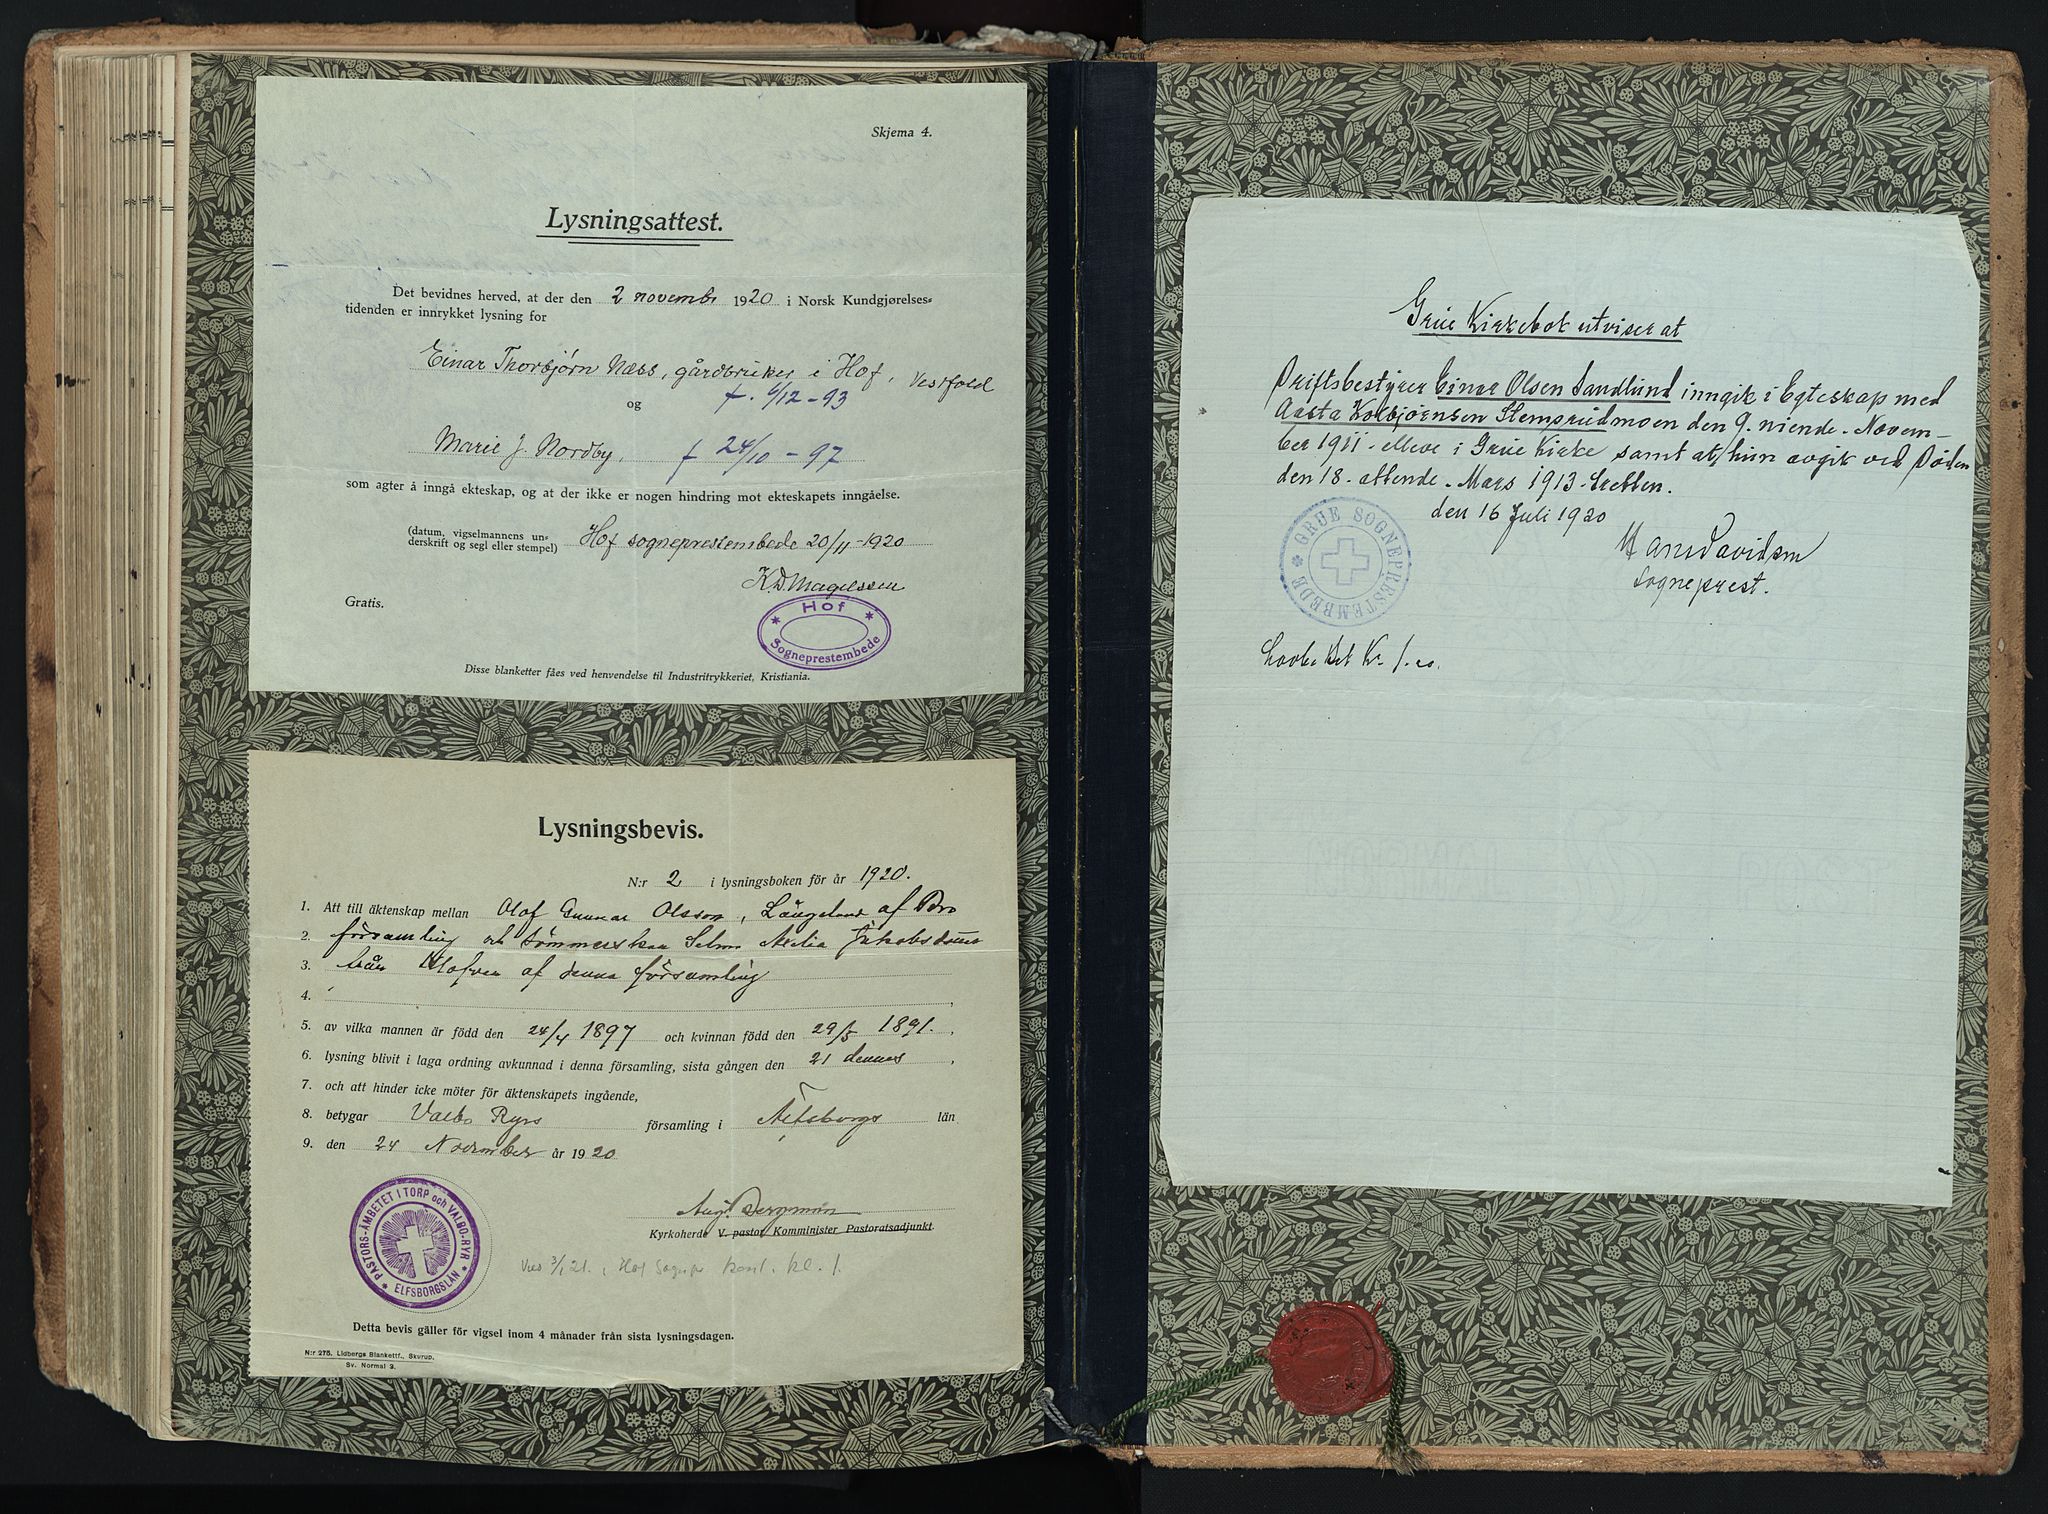 Skjema 4.
Lysningsattest.
Det bevidnes herved, at der den 2 novembr 1920 i Norsk Kundgjørelses-
tidenden er innrykket lysning for
Einar Thorbjørn Næss, gårdbruker i Hof, Vestfold
og f. 6/12-93
Marie J. Nordby, f 24/10-97
som agter å inngå ekteskap, og at der ikke er nogen hindring mot ekteskapets inngåelse.
(datum, vigselmannens un-
derskrift og segl eller stempel) Hof sogneprestembede 20/11-1920
K D Magelssen
Gratis.
Hof
Sogneprestembede
Disse blanketter fåes ved henvendelse til Industritrykkeriet, Kristiania.
Lysningsbevis.
N:r 2 i lysningsboken för år 1920.
1. Att till äktenskap mellan Olof Gunnar Olsson, Långeland af Bro
2. församling och sömmerskan Selma Atelia Jakobsdotter
3. från af denna församling
4.
5. av vilka mannen är född den 24/4 1897 och kvinnan född den 29/5 1891.,
6. lysning blivit i laga ordning avkunnad i denna församling, sista gången den 21 dennes,
7. och att hinder icke möter för äktenskapets ingående,
8. betygar Valbo Ryrs församling i Älfsborgs län
9. den 24 November år 1920
Aug. Bergman
Kyrkoherde V. pastor Komminister Pastoratsadjunkt
PASTORS-ÄMBETET I TORP och VALBO-RYR
ELFSBORGSLÄN
Vies 3/1 21. i Hof Sognepr kont. kl. 1.
Detta bevis gäller för vigsel inom 4 månader från sista lysningsdagen.
N:r 275. Lidbergs Blankettf., Skurup.
Sv. Normal 3.
Grue Kirkebok utviser at
Driftsbestyrer Einar Olsen Sandlund inngik i Egteskap med
Aasta Kolbjørnsen Stemsrudmoen den 9. niende. Novem-
ber 1911 - elleve i Grue Kirke samt at hun avgik ved Døden
den 18. attende. Mars 1913 - tretten.
den 16 Juli 1920
Hans Davidsen
Sogneprest.
GRUE SOGNEPRESTEMBEDE
Kr. 1.00.